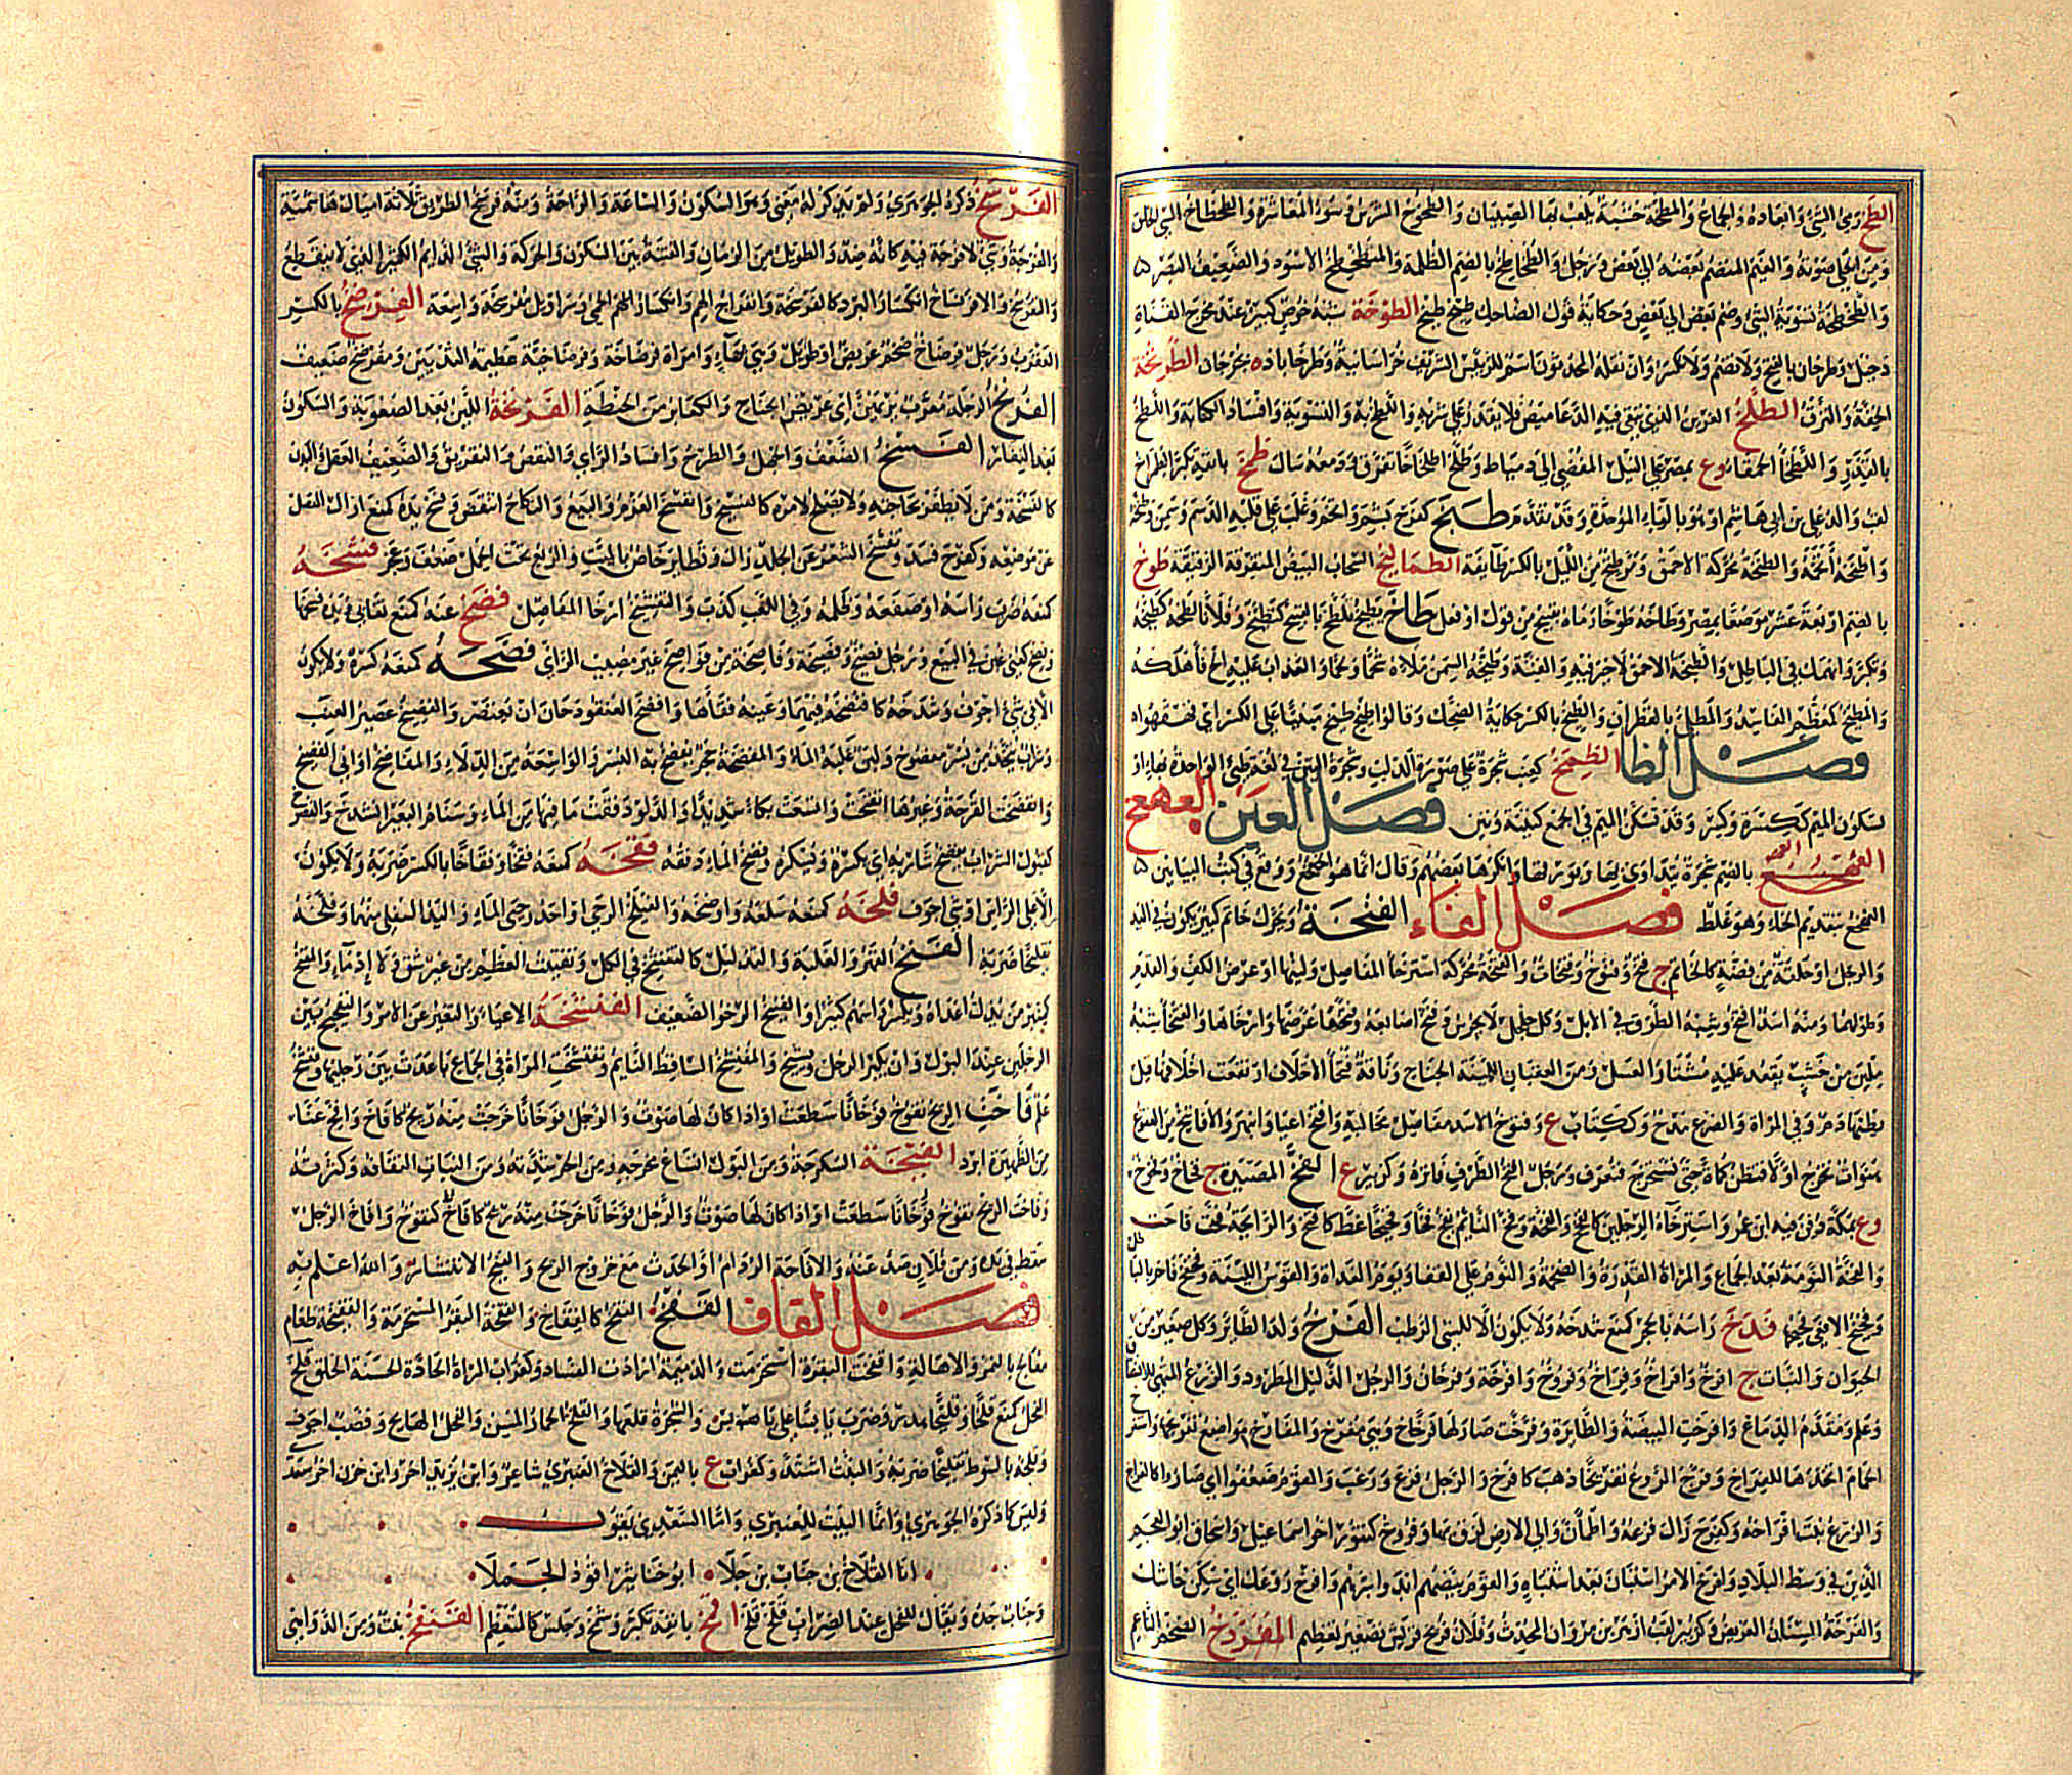 الطخ رمى الشئ وابعاده والجماع والمطخة خشبة يلعب بها الصبيان والطخوخ الشرس وسوء المعاشرة والطخطاخ السئ الخلق
ومن الحلى صوته والغيم المنضم بعضه الى بعض ورجل والطخاطخ بالضم الظلمة والمتطخطخ الاسود والضعيف البصر
والطخطخة تسوية الشئ وضم بعض الى بعض وحكاية قول الضاحك طيخ طيخ الطرخة شبه حوض كبير عند مخرج القناة
دخيل وطرخان بالفتح ولا تضم ولا تكسر وان نقله المحدثون اسم للرئيس الشريف خراسانية وطرخاباد ه بجرجان الطريخة
الخفة والنزق الطلخ الغرين الذى يبقى فيه الدعاميص فلا يقدر على شربه واللطخ به والتسوية وافساد الكتابة واللطخ
بالقذر واللطخاء الحمقاء وع بمصر على النيل المفضى الى دمياط وطلخ اطلخاخا تفرق ودمعه سال طمخ بانفه تكبر الطماخ
لقب والد على بن ابى هاشم او هو بالباء الموحدة وقد تقدم طنخ كفرح بشم واتخم وغلب على قلبه الدسم وسمن وطنخه
واطنخه اتخمه والطنخة محركة الاحمق ومر طنخ من الليل بالكسر طايفة الطمالخ السحاب البيض المتفرقة الرقيقة طوخ
بالضم اربعة عشر موضعا بمصر وطاخه طوخا رماه بقبيح من قول او فعل طاخ يطيخ تلطخ بالقبيح كتطيخ وفلانا لطخه كطيخه
وتكبر وانهمك فى الباطل والطيخة الاحمق لا خير فيه والفتنة وطيخه السمن ملاه شحما ولحما والعذاب عليه الح فاهلكه
والمطيخ كمعظم الفاسد والمطلى بالقطران والطيخ بالكسر حكاية الضحك وقالوا طيخ طيخ مبنيا على الكسر اى قهقهوا
فصل الظا الظمخ كعنب شجرة على صورة الدلب وشجرة التين فى لغة طيئ الواحدة بهاء او
بسكون الميم ككسرة وكسر وقد تسكن الميم فى الجمع كتينة وتين فصل العين العهعخ
العهعخ بالضم شجرة يتداوى بها وبورقها وانكرها بعضهم وقال انما هو الخعخع ووقع فى كتب البيانيين
الهعخع بتقديم الهاء وهو غلط فصل الفاء الفتخة ويحرك خاتم كبير يكون فى اليد
والرجل او حلقة من فضة كالخاتم ج فتخ وفتوخ وفتخات والفتخ محركة استرخاء المفاصل ولينها او عرض الكف والقدم
وطولهما ومنه اسد افتخ وشبه الطرق فى الابل وكل جلجل لا يجرس وفتخ اصابعه وفتخها عرضها وارخاها والفتخاء شبه
ملبن من خشب يقعد عليه مشتار العسل ومن العقبان اللينة الجناح وناقة فتخاء الاخلاف ارتفعت اخلافها قبل
بطنها ذم وفى المراة والضرع مدح وككتاب ع وفتوخ الاسد مفاصل مخالبه وافتخ اعيا وانبهر والافاتيخ من الفقوع
هنوات تخرج اولا فتظن كماة حتى تستخرج فتعرف ورجل افتخ الطرف فاتره وكزبير ع الفخ المصيدة ج فخاخ وفخوخ
وع بمكة دفن فيه ابن عمر واسترخاء الرجلين كالفخخ والفخة وفخ النائم يفخ فخا وفخيخا غط كافتخ والرائحة فخت فاحت
والفخة النومة بعد الجماع والمراة القذرة والضخمة والنوم على القفا ونوم الغداة والقوس اللينة وفخفخ فاخر بالباطل
وفخيخ الافعى فحيحها فدخ راسه بالحجر كمنع شدخه ولا يكون الا للشئ الرطب الفرخ ولد الطائر وكل صغير من
الحيوان والنبات ج افرخ وافراخ وفراخ وفروخ وافرخة وفرخان والرجل الذليل المطرود والزرع المتهيئ للانشقاق
وعلم ومقدم الدماغ وافرخت البيضة والطائرة وفرخت صار لها فرخ وهى مفرخ والمفارخ مواضع تفريخها واستفرخ
الحمام اتخذها للفراخ وفرخ الروع تفريخا ذهب كافرخ والرجل فزع ورعب والقوم ضعفوا اى صاروا كالفراخ
والزرع نبتت افراخه وكفرح زال فزعه واطمان والى الارض لزق بها وفروخ كتنور اخو اسماعيل واسحاق ابو العجم
الذين فى وسط البلاد وافرخ الامر استبان بعد اشتباه والقوم بيضهم ابدوا سرهم وافرخ روعك اى سكن جاشك
والفرخة السنان العريض وكزبير لقب ازهر بن مروان المحدث وفلان فريخ قريش تصغير تعظيم المفردخ الضخم الناعم
الفرسخ ذكره الجوهرى ولم يذكر له معنى وهو السكون والساعة والراحة ومنه فرسخ الطريق ثلاثة اميال هاشمية
والفرجة وشئ لا فرجة فيه كانه ضد والطويل من الزمان والفينة بين السكون والحركة والشئ الدائم الكثير الذى لا ينقطع
والتفرسخ والافرنساخ انكسار البرد كالفرسخة وانفراج الهم وانكسار الحمى وسراويل مفرسخة واسعة الفرضخ بالكسر
العقرب ورجل فرضاخ ضخم عريض او طويل وهى بهاء وامراة فرضاخة وفرضاخية عظيمة الثديين ومفرضخ ضعيف
الفرفخ الرجلة معرب برپهن اى عريض الجناح والكعابر من الحنطة الفرنخة اللين بعد الصعوبة والسكون
بعد النفار الفسخ الضعف والجهل والطرح وافساد الراى والنقض والتفريق والضعيف العقل والبدن
كالفسخة ومن لا يظفر بحاجته ولا يصلح لامره كالفسيخ وانفسخ العزم والبيع والنكاح انتقض وفسخ يده كمنع ازال المفصل
عن موضعه وكفرح فسد وتفسخ الشعر عن الجلد زال وتطاير خاص بالميت والربع تحت الحمل ضعف وعجز فشخه
كمنعه ضرب راسه او صفعه وظلمه وفى اللعب كذب والتفشيخ ارخاء المفاصل فصخ عنه كمنع تغابى ويده فسخها
وفصخ كعنى غبن فى البيع ورجل فصيخ وفصيخة وفاصخة من فواصخ غير مصيب الراى فضخه كمنعه كسره ولا يكون
الا فى شئ اجوف وشدخه كافتضخه فيهما وعينه فقاها وافضخ العنقود حان ان يعتصر والفضيخ عصير العنب
وشراب يتخذ من بسر مفضوخ ولبن غلبه الماء والمفضخة حجر يفضخ به البسر والواسعة من الدلاء والمفاضخ اوانى الفضيخ
وانفضخت القرحة وغيرها انفتحت وانسعت بكاء شديدا والدلو دفقت ما فيها من الماء وسنام البعير انشدخ والفضوخ
كقبول الشراب يفضخ شاربه اى يكسره ويسكره وفضخ الماء دفقه فقخه كمنعه فقخا وفقاخا بالكسر ضربه ولا يكون
الا على الراس او شئ اجوف فلخه كمنعه سلعه واوضحه والفيلخ الرحى او احد رحيى الماء واليد السفلى منهما وفلخه
تفليخا ضربه الفنخ القهر والغلبة والتذليل كالتفنيخ فى الكل وتفتيت العظم من غير شق ولا ادماء والفنخ
كمنبر من يذل اعداه ويكسر راسهم كثيرا والفنيخ الرخو الضعيف الفنشخة الاعياء والتغير عن الامر والتفحيج بين
الرجلين عند البول وان يكبر الرجل ويشيخ والمفنشخ الساقط النائم وتفنشخت المراة فى الجماع باعدت بين رجليها وفنشخ
علم فاخت الريح تفوخ فوخانا سطعت او اذا كان لها صوت والرجل فوخانا خرجت منه ريح كافاخ وافخ عنا
من الظهيرة ابرد الفيخة السكرجة ومن البول اتساع مخرجه ومن الحر شدته ومن النبات التفافه وكثرته
وفاخت الريح تفوخ فوخانا سطعت او اذا كان لها صوت والرجل فوخانا خرجت منه ريح كافاخ كتفوخ وافاخ الرجل
سقط فى يده ومن فلان صد عنه والافاخة الردام او الحدث مع خروج الريح والفيخ الانتشار والله اعلم به
فصل القاف القفخ القفخ كالفقاخ والقفخة البقرة المستحرمة والقفيخة طعام
يعالج بالتمر والاهالة واقفخت البقرة استحرمت والذيبة ارادت السفاد وكغراب المراة الحادرة الحسنة الخلق قلخ
الفحل كمنع قلخا وقليخا هدر وضرب يابسا على يابس والشجرة قلعها والقلخ الحمار المسن والفحل الهايج وقصب اجوف
وقلخه بالسوط تقليخا ضربه والنبت اشتد وكغراب ع باليمن والقلاخ العنبرى شاعر وابن يزيد اخر وابن حزن اخر سعدى
وليس كما ذكره الجوهرى وانما البيت للعنبرى واما السعدى يقول
انا القلاخ بن جناب بن جلا ابو خناثير اقود الجملا
وجناب جده ويقال للفحل عند الضراب قلخ قلخ اقمخ بانفه تكبر وشمخ وجلس كالمتعظم القنفخ نبت ومن الدواهى